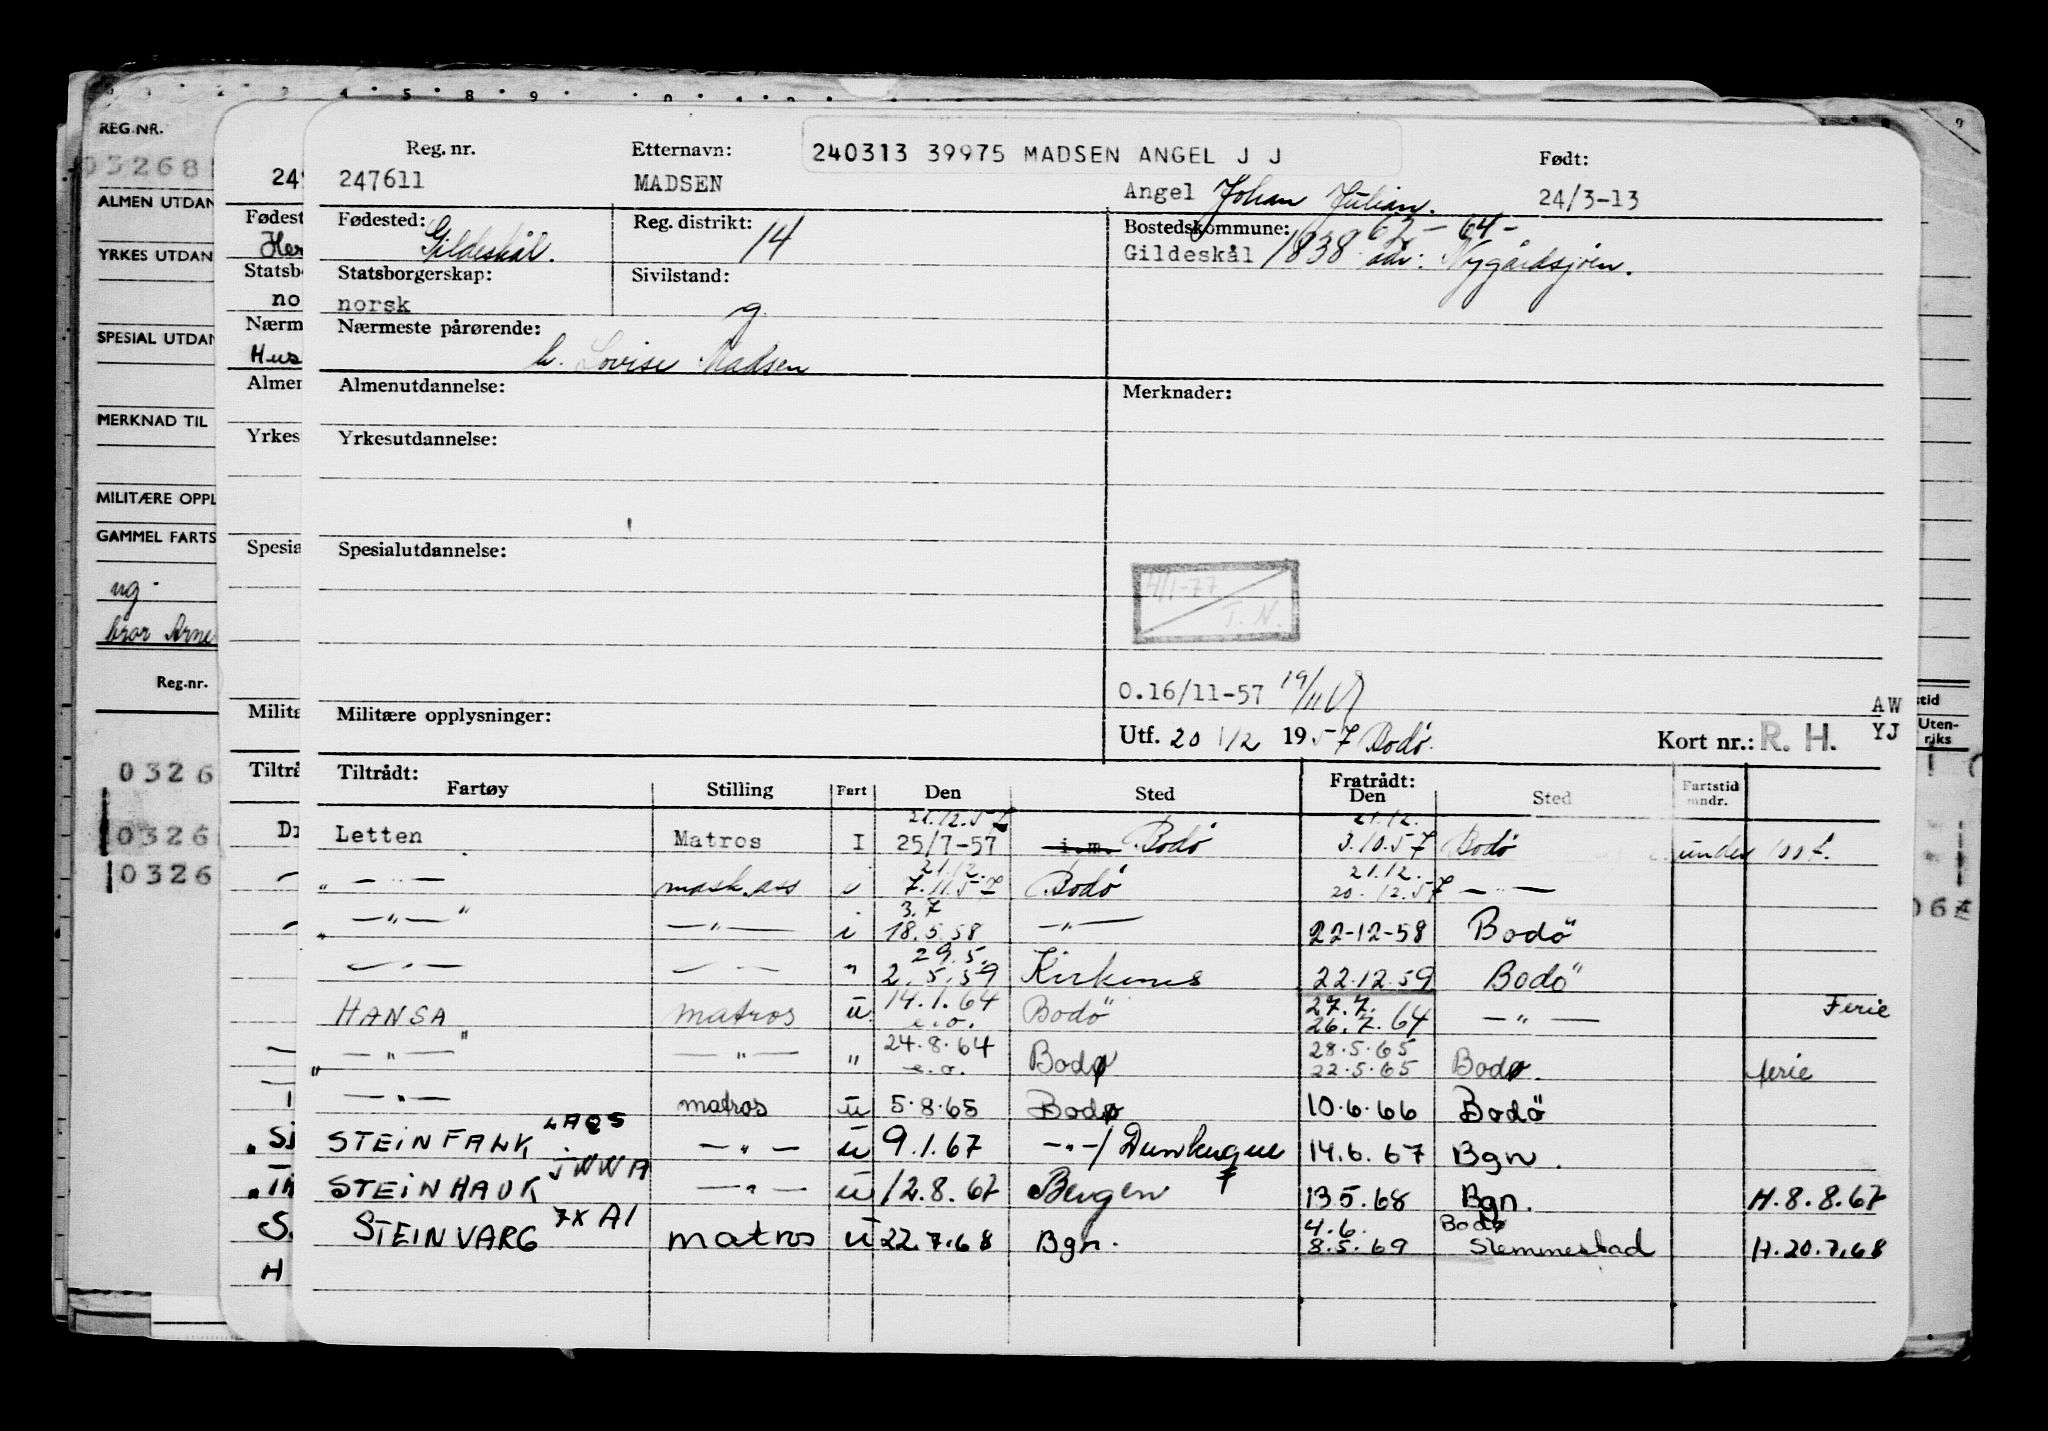 REG.NR.
03268
ALMEN UTDAN
YRKES UTDAN
SPESIAL UTDAN
MERKNAD TIL
MILITÆRE OPPL
GAMMEL FARTS
ug.
bror Arne
Reg.nr.
0326
0326
0326
249
Fødest
Her
Statsb
no
Nærm
Hus
Almen
Yrkes
Spesia
Militæ
Tiltrå
Reg. nr. Etternavn: 240313 39975 MADSEN ANGEL J J Født:
247611 MADSEN Angel Johan Julian. 24/3-13
Fødested: Gildeskål. Reg. distrikt: 14 Bostedskommune: 62 - 64 -
Gildeskål 1838 adr: Nygårdsjøen.
Statsborgerskap: Sivilstand:
norsk g.
Nærmeste pårørende:
h. Lovise Madsen
Almenutdannelse: Merknader:
Yrkesutdannelse:
Spesialutdannelse:
4/1-77
T. N.
0.16/11-57 19/11
AW
Militære opplysninger: Utf. 20 1/2 1957 Bodø. Kort nr.: R. H. YJ
stid
Uten-
riks
Tiltrådt: Fratrådt:
Fartøy Stilling Fart Den Sted Den Sted Fartstid mndr.
21.12.57 21.12.
Letten Matros I 25/7-57 i.m. Bodø 3.10.57 Bodø under 100 t.
21.12. 21.12.
" — " — mask.ass i 7.11.57 Bodø 20.12.57 — " —
3.7
" — " — " — " — i 18.5.58 — " — 22-12-58 Bodö
29.5.
— " — — " — " 2.5.59 Kirkenes 22.12.59 Bodö
HANSA matros u 14.1.64 Bodö 27.7. Ferie
e.o. 26.7.64 — " —
" — " — " — " — " 24.8.64 Bodø 28.5.65 Bodø. ferie
e.o. 22.5.65
— " — matros u 5.8.65 Bodø 10.6.66 Bodö
STEINFALK LAQS — " — u 9.1.67 — " — / Dunkuque 14.6.67 Bgn.
STEINHAUK JWWA — " — u 12.8.67 Bergen 13.5.68 Bgn. H.8.8.67
4.6. Bodø
STEINVARG 7XAI matros u 22.7.68 Bgn. 8.5.69 Slemmestad H.20.7.68